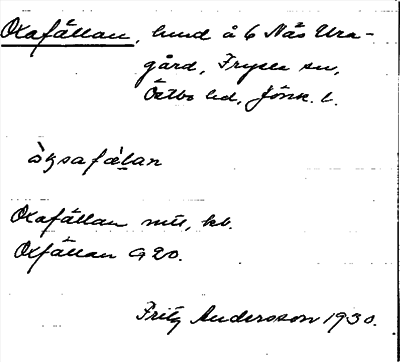 Oxafällan, lund å 6 Nås Ura-
gård, Fryele sn,
Östbo hd, Jönk. l.
òksafǽlan
Oxafällan mtl, kb.
Oxfällan G 20.
Fritz Andersson 1930.